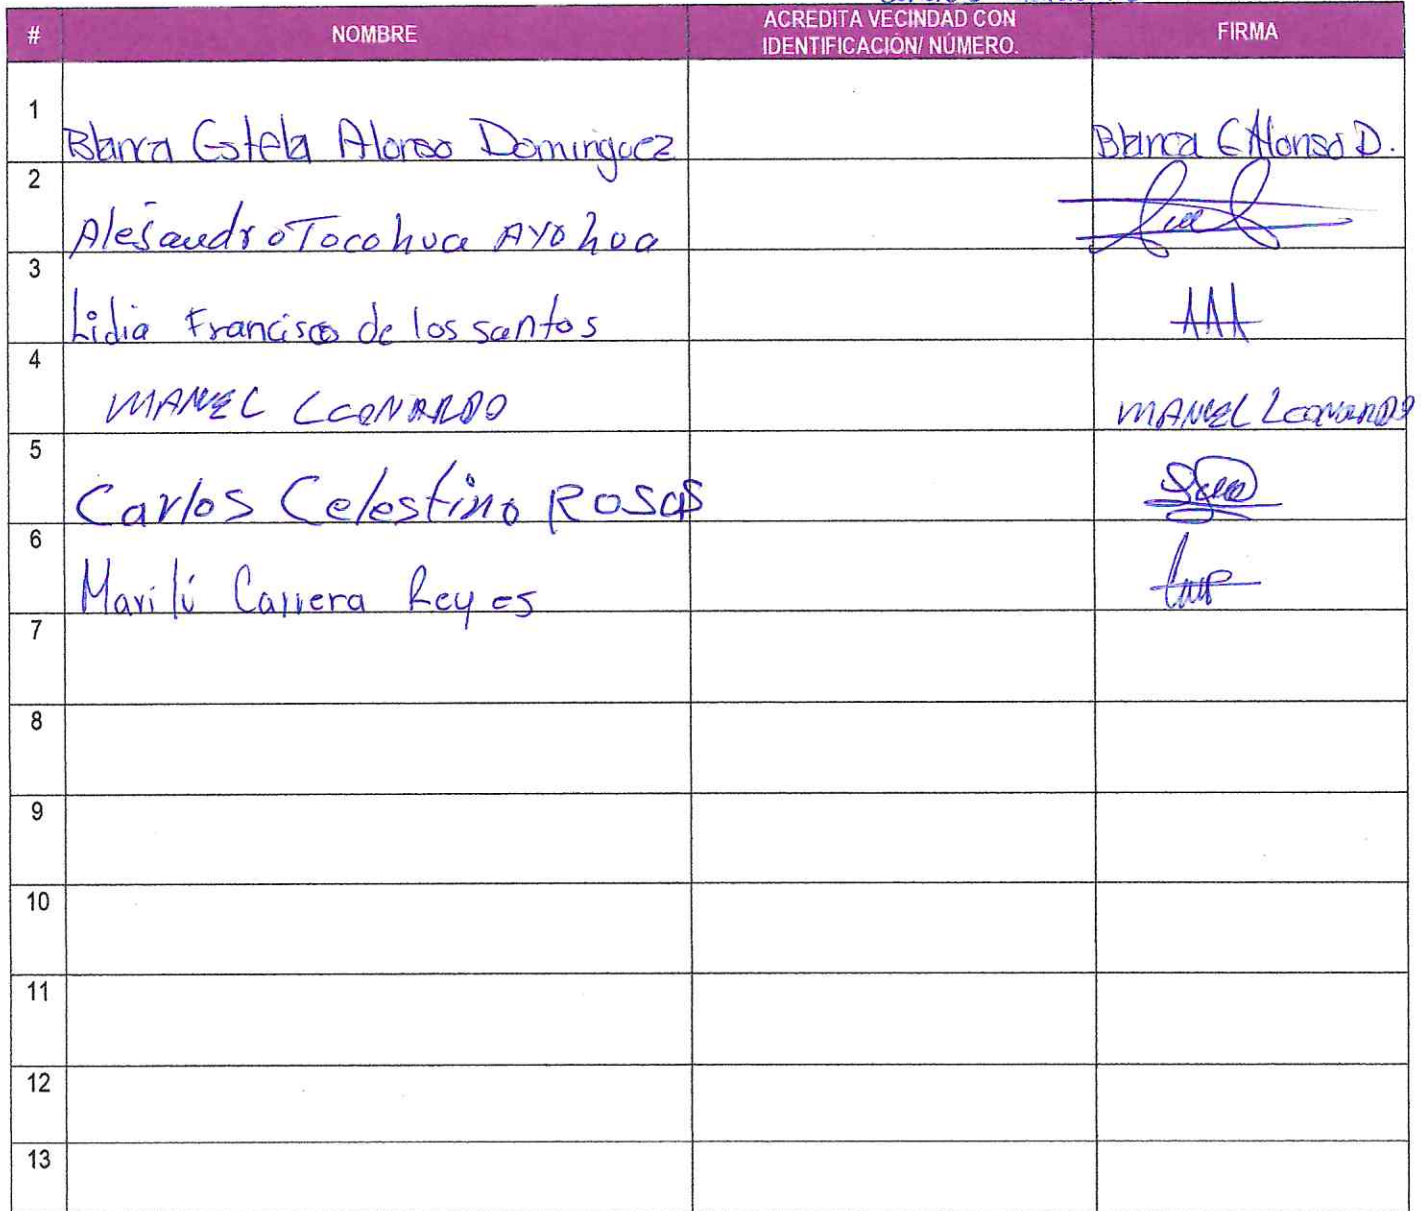 # NOMBRE ACREDITA VECINDAD CON IDENTIFICACIÓN/ NÚMERO. FIRMA
1 Blanca Estela Alonso Dominguez Blanca E Alonso D.
2 Alejandro Tocohua Ayohua
3 Lidia Francisco de los santos
4 MANUEL LEONARDO MANUEL LEONARDO
5 Carlos Celestino ROSAS
6 Marilú Carrera Reyes
7
8
9
10
11
12
13